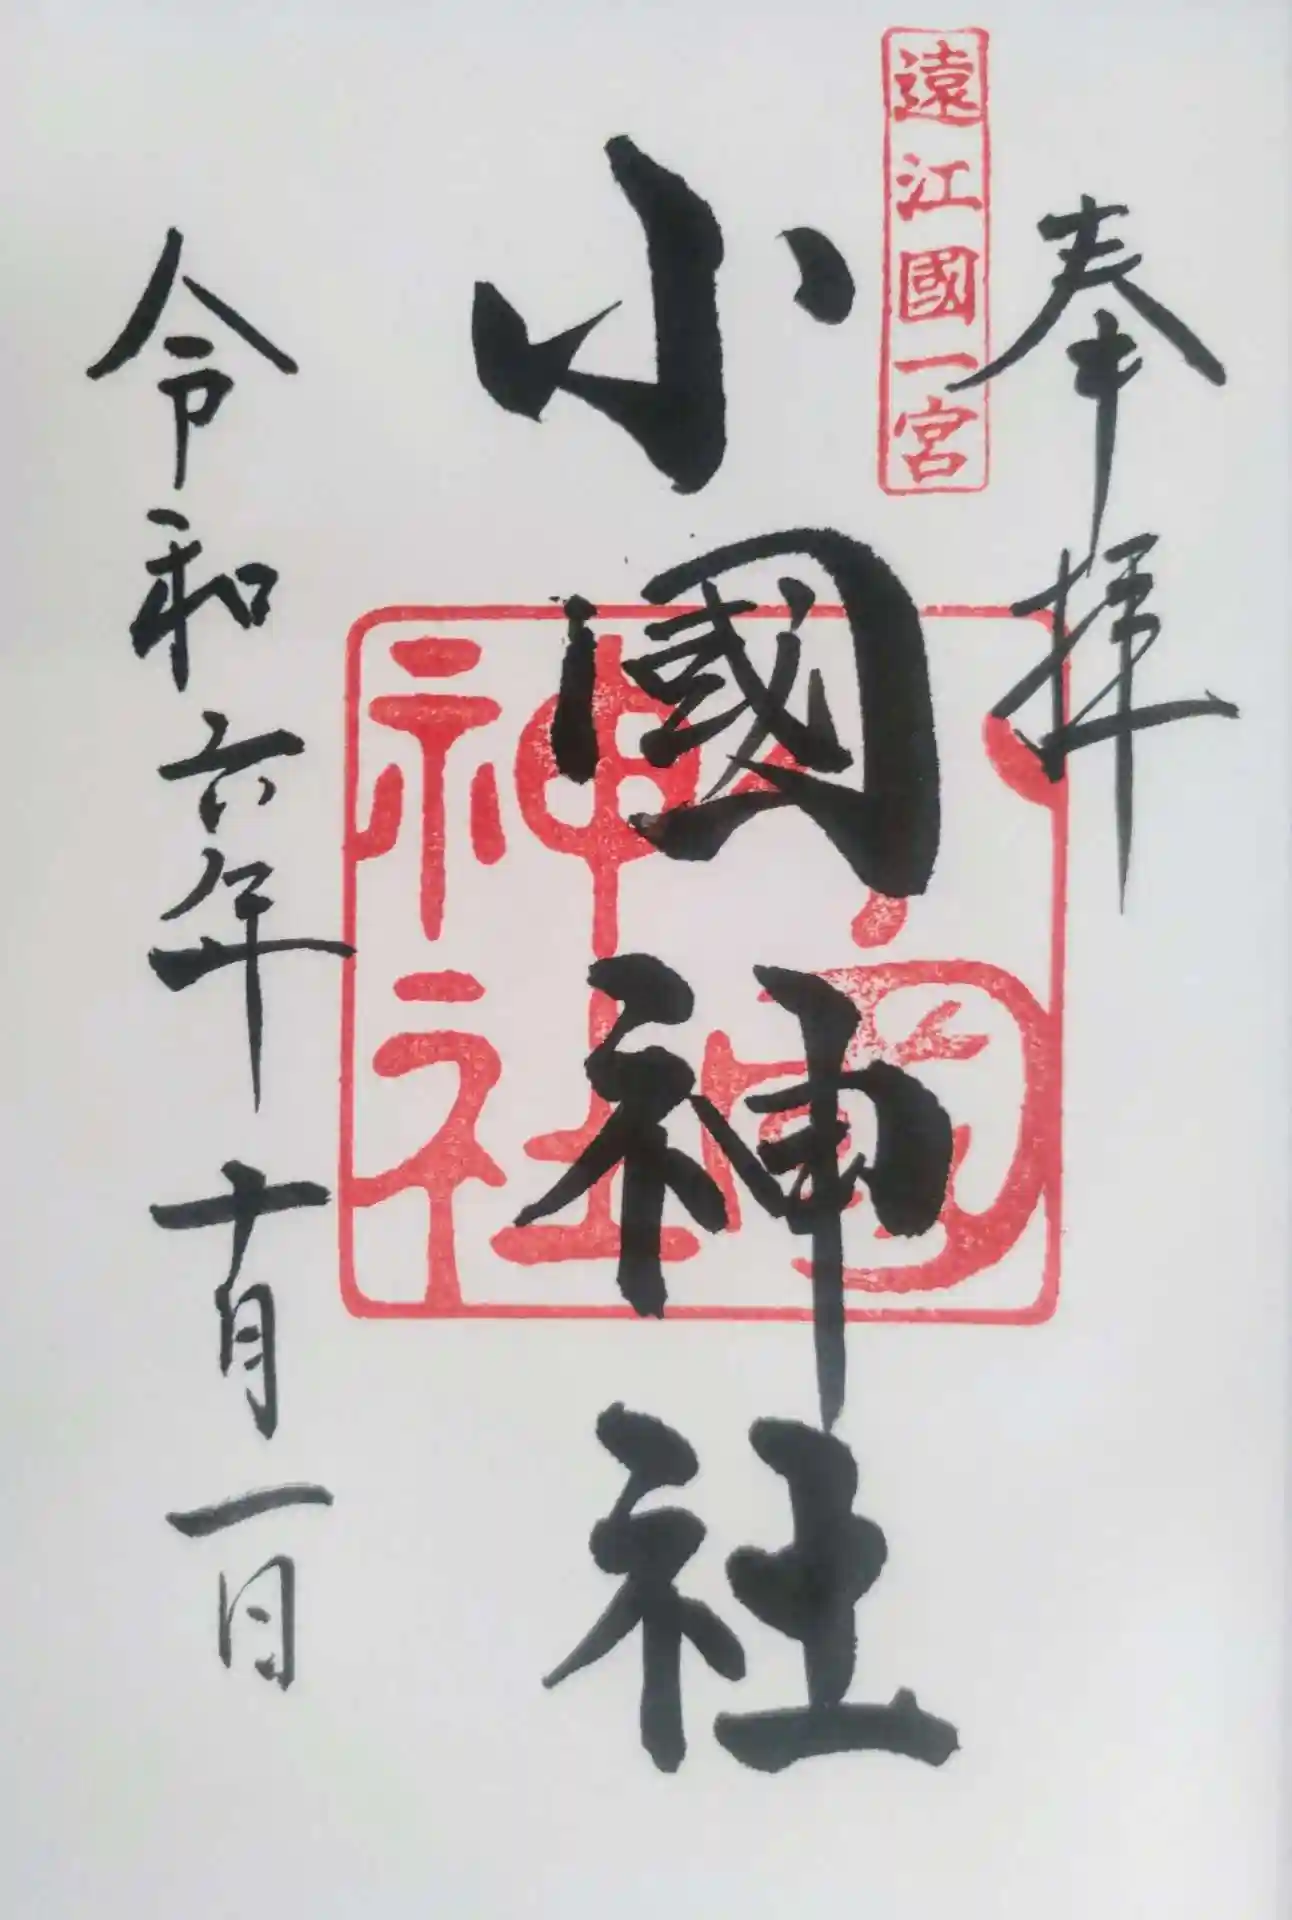 奉拝
遠江國一宮
小國神社
小國
神社
令和六年十月一日